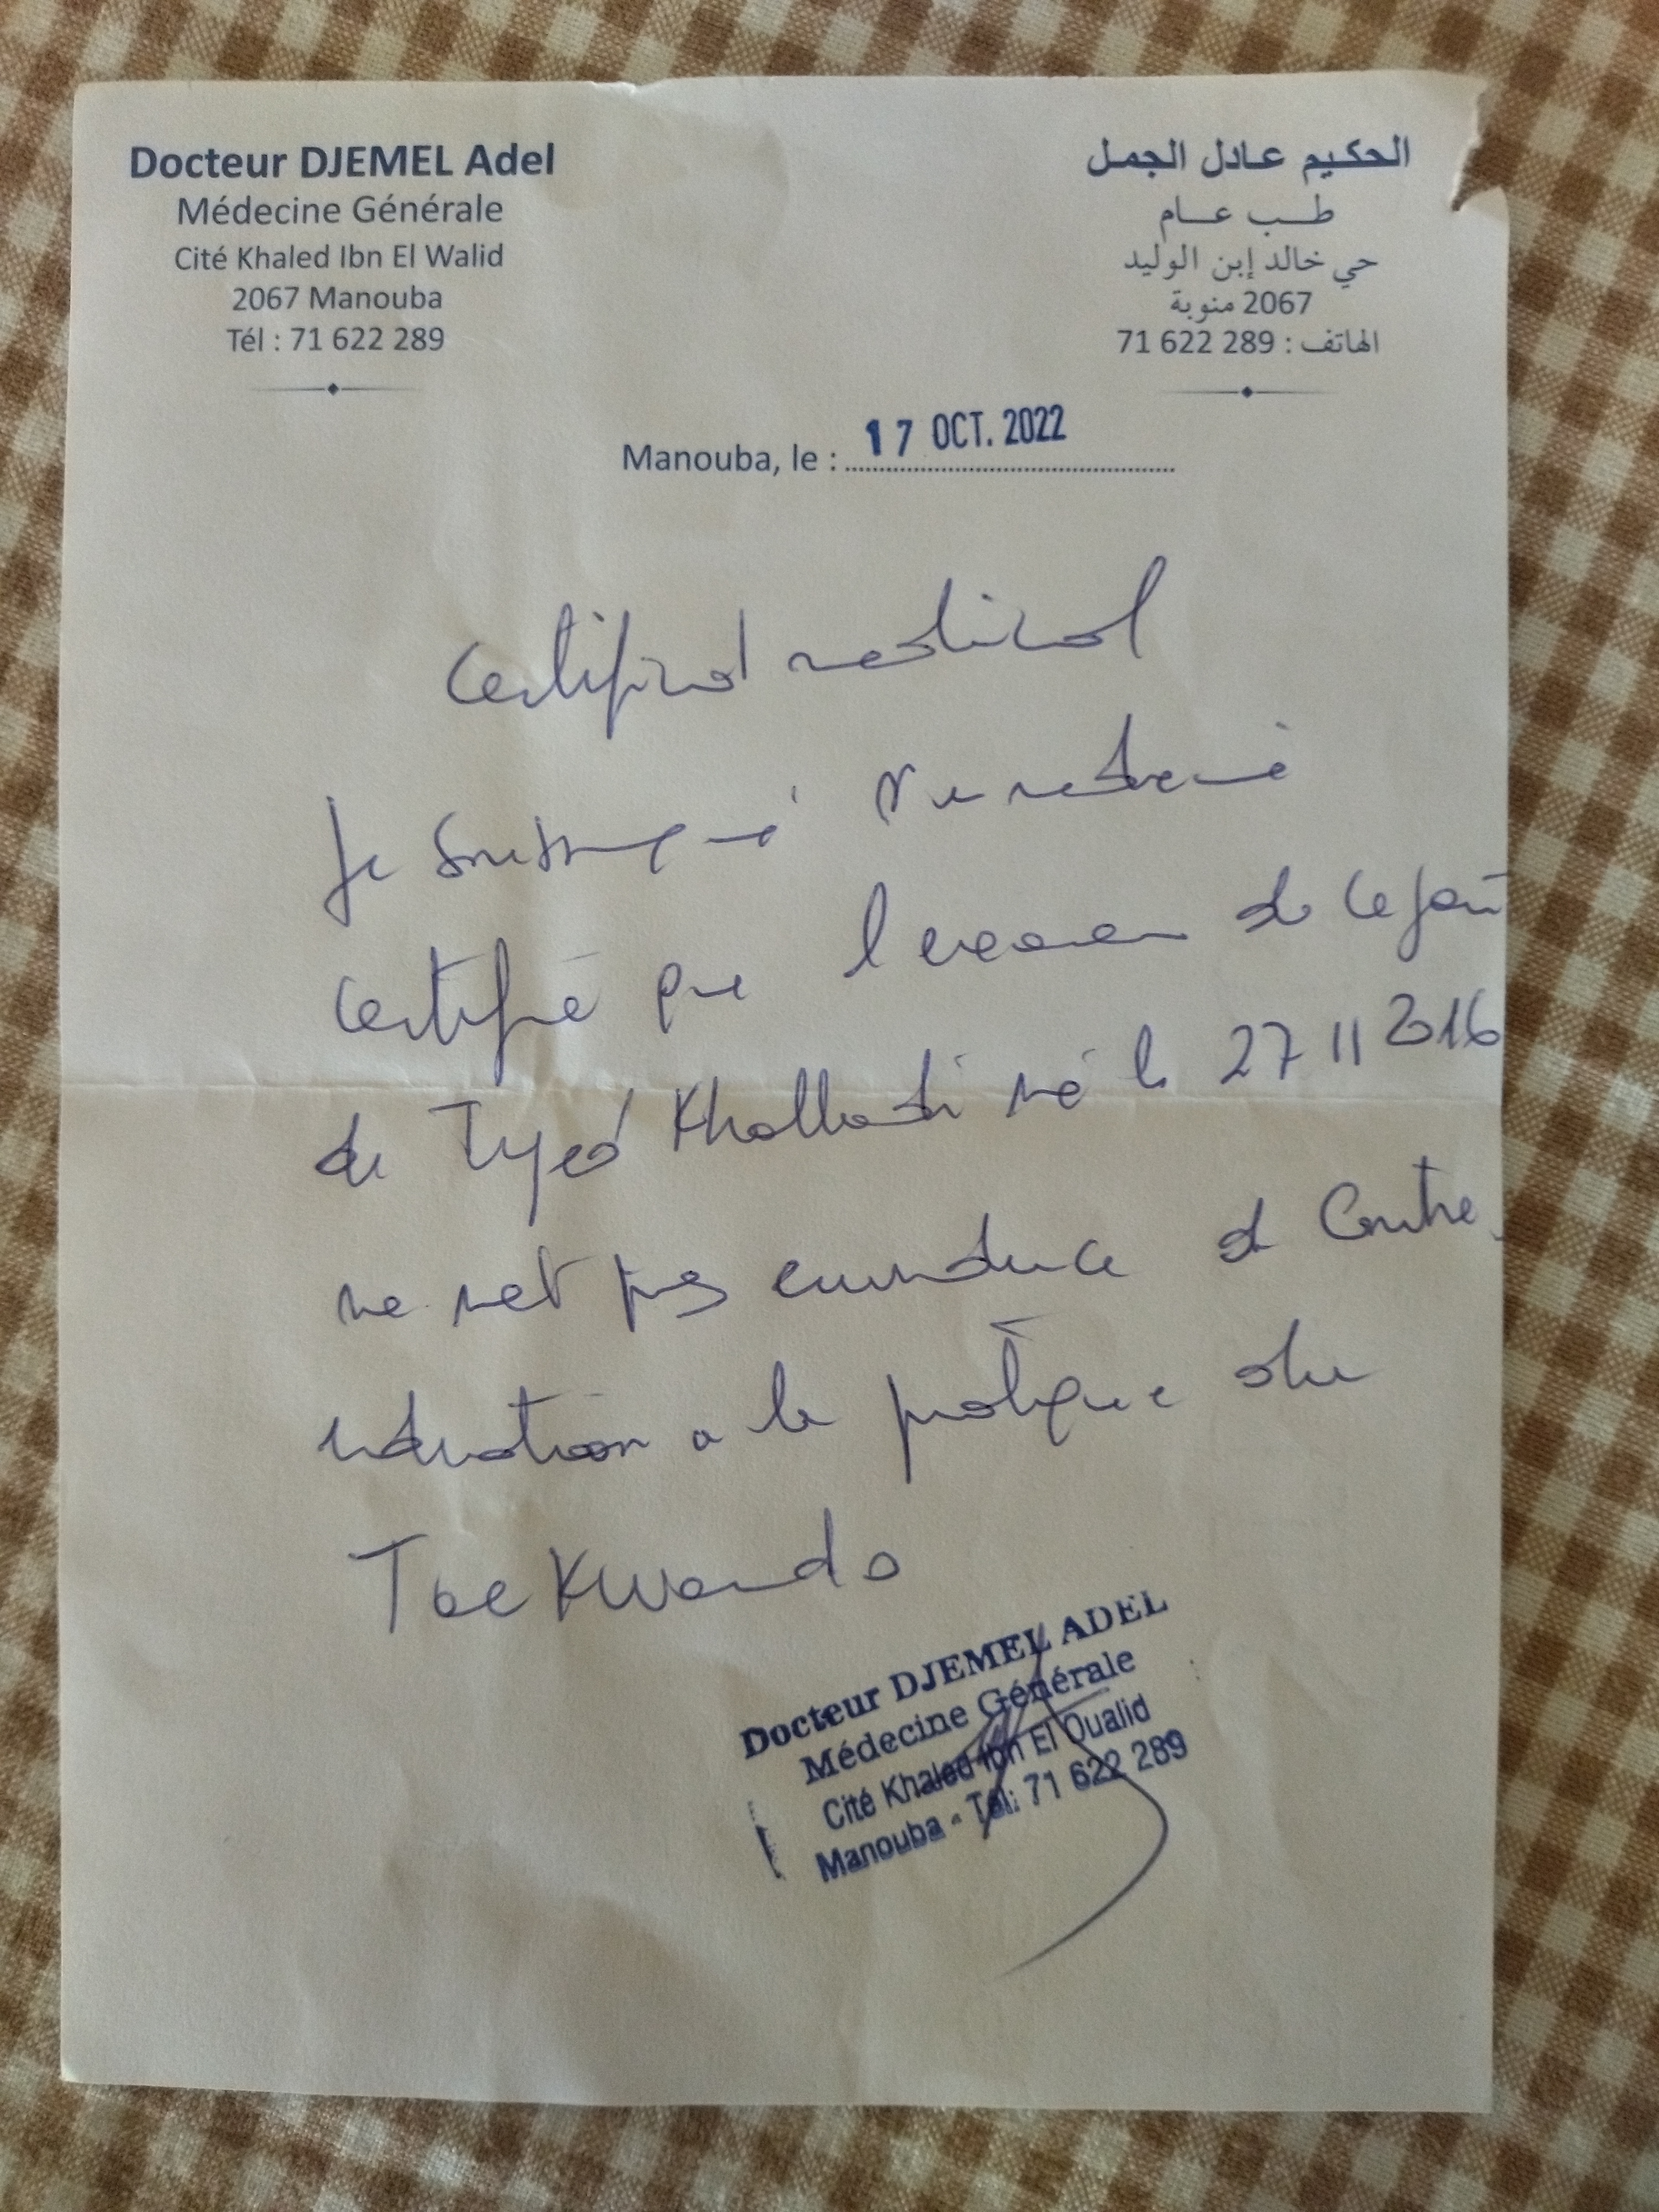 Docteur DJEMEL Adel
Médecine Générale
Cité Khaled Ibn El Walid
2067 Manouba
Tél : 71 622 289
الحكيم عادل الجمل
طب عام
حي خالد إبن الوليد
2067 منوبة
الهاتف : 71 622 289
Manouba, le : 17 OCT. 2022
Certificat medical
Je soussigné Dr en medecine
certifie que l examen de ce jour
de Iyed Khalladi né le 27 11 2016
ne met pas en evidence de contre
indication a la pratique du
TaeKwondo
Docteur DJEMEL ADEL
Médecine Générale
Cité Khaled Ibn El Oualid
Manouba - Tél: 71 622 289